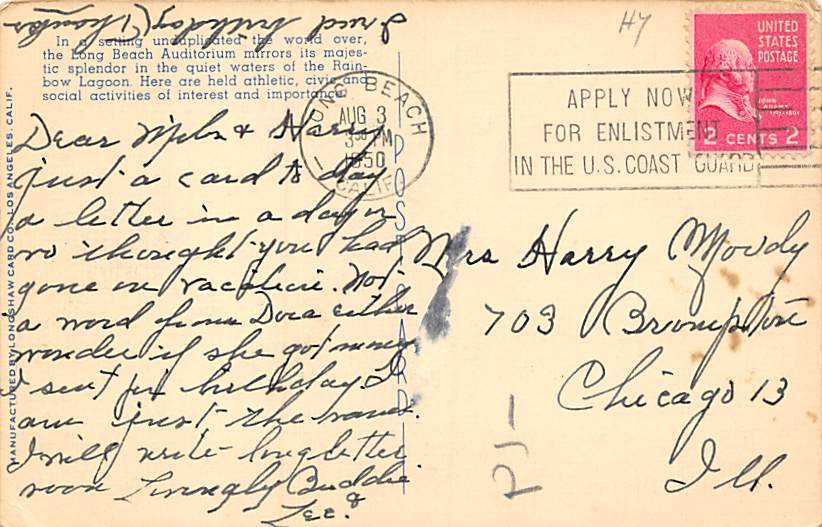 In a setting unduplicated the world over,
the Long Beach Auditorium mirrors its majes-
tic splendor in the quiet waters of the Rain-
bow Lagoon. Here are held athletic, civic and
social activities of interest and importance.
Dear & Harry
just a card to day
a letter in a day or
so thought you had
gone on vacation. Not
a word from Dora either
wonder if she got money
I sent for birthday I
am just the same.
I will write long letter
soon Lovingly Buddie
& Lee.
MANUFACTURED BY LONGSHAW CARD CO., LOS ANGELES, CALIF.
POST CARD
LONG BEACH
AUG 3
3 30 PM
1950
CALIF.
APPLY NOW
FOR ENLISTMENT
IN THE U.S. COAST GUARD
UNITED
STATES
POSTAGE
JOHN
ADAMS
2 CENTS 2
HY
Mrs Harry Moody
703 Brompton
Chicago 13
Ill.